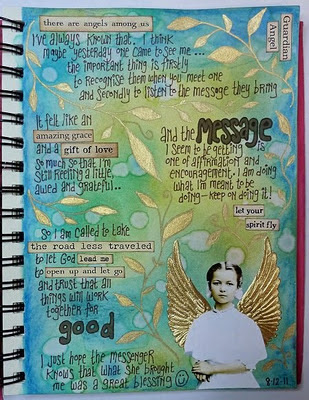 there are angels among us
Guardian
Angel
I've always known that. I think
maybe yesterday one came to see me...
the important thing is firstly
to recognise them when you meet one
and secondly to listen to the message they bring
It felt like an
amazing grace
and a gift of love
so much so that I'm
still reeling a little..
awed and grateful..
and the MESSAGE
I seem to be getting is
one of affirmation and
encouragement. I am doing
what I'm meant to be
doing - keep on doing it!
let your
spirit fly
So I am called to take
the road less traveled
to let God lead me
to open up and let go
and trust that all
things will work
together for
good
I just hope the messenger
knows that what she brought
me was a great blessing
8·12·11